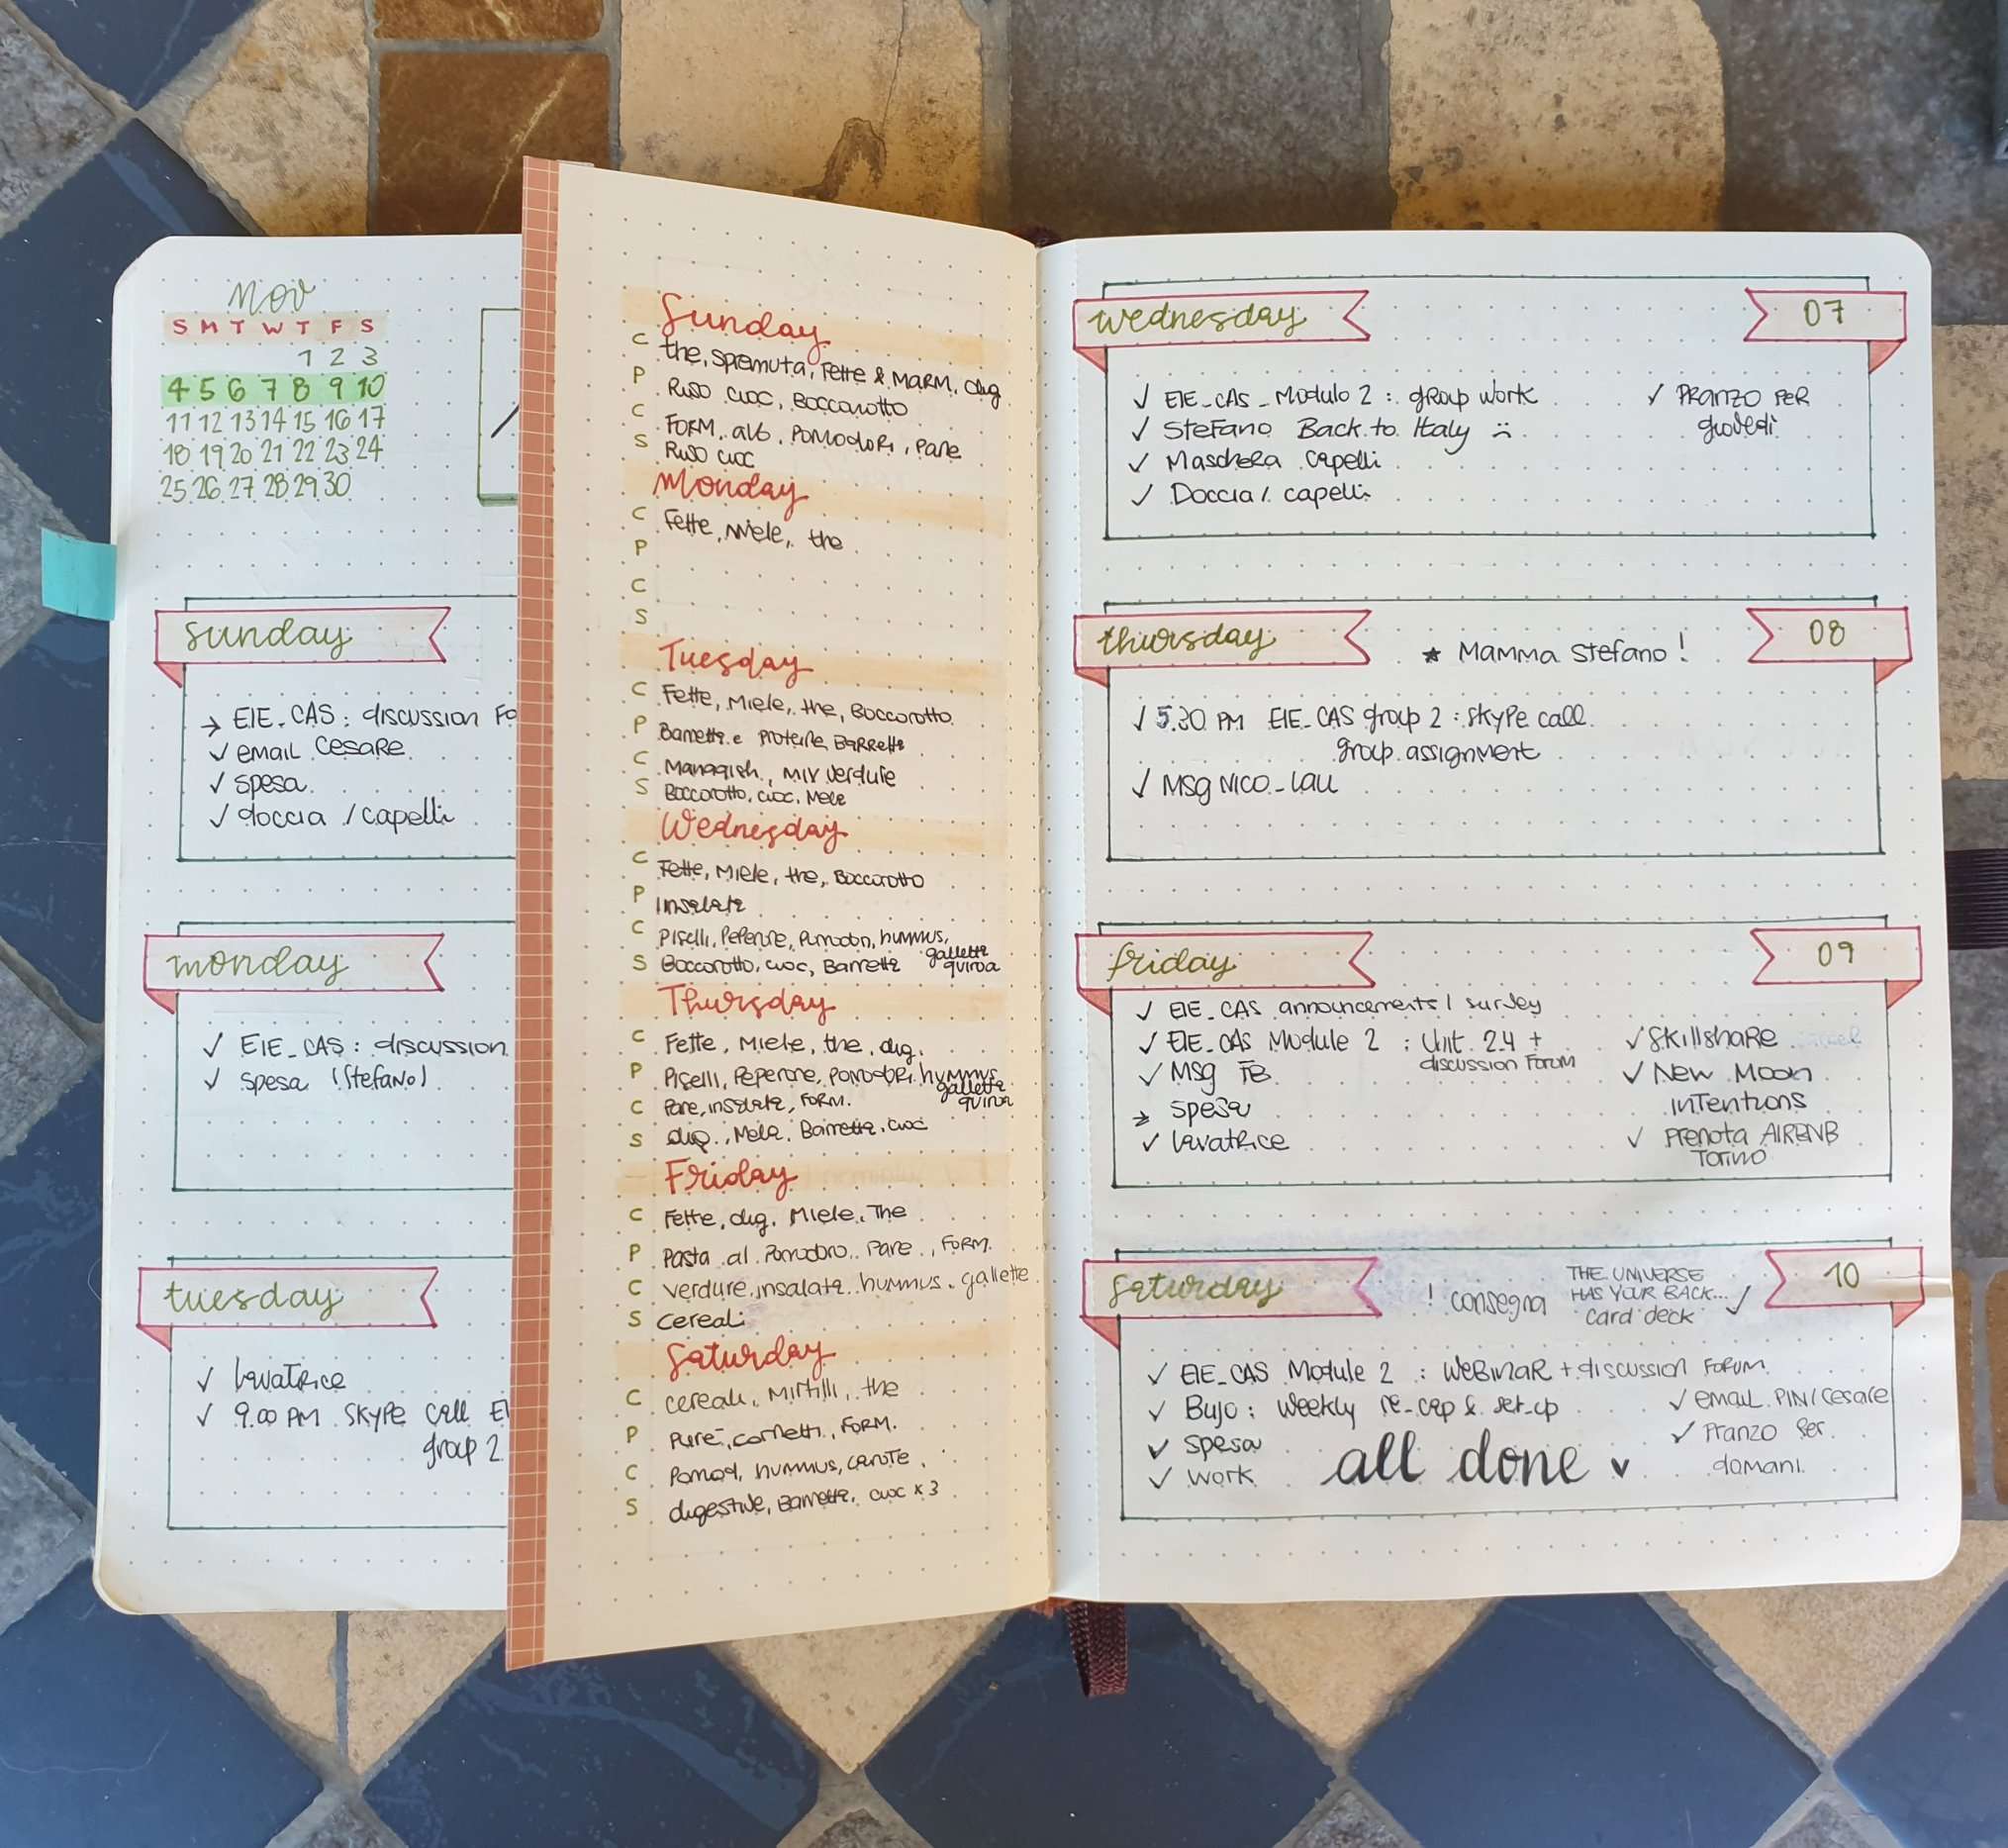 Nov
S M T W T F S
1 2 3
4 5 6 7 8 9 10
11 12 13 14 15 16 17
18 19 20 21 22 23 24
25 26 27 28 29 30
sunday
→ EIE_CAS: discussion Fo
✓ email Cesare
✓ spesa
✓ doccia / capelli
monday
✓ EIE_CAS: discussion
✓ spesa (Stefano)
tuesday
✓ lavatrice
✓ 9.00 PM SKYPE call EI
group 2
Sunday
C the, spremuta, Fette & MARM, dig
P Riso cioc, Boccarotto
C FORM. alb, POMODORI, pane
S Riso cioc
Monday
C Fette, Miele, the
P
C
S
Tuesday
C Fette, Miele, the, Boccorotto
P Barretta e proteine, Barretta
C , MIX verdure
S Boccorotto, cioc, Mele
Wednesday
C Fette, Miele, the, Boccorotto
P Insalata
C Piselli, Peperone, Pomodori, hummus,
gallette
quinoa
S Boccorotto, cioc, Barretta
Thursday
C Fette, Miele, the, dig.
P Piselli, Peperone, POMODORI, hummus
gallette
quinoa
C Pane, insalata, FORM.
S dig., Mela, Barretta, cioc
Friday
C Fette, dig, Miele, The
P Pasta al Pomodoro, Pane, FORM.
C verdure, insalata, hummus, gallette
S cereali
Saturday
C cereali, Mirtilli, the
P Purè, cornetti, FORM.
C Pomod, hummus, carote,
S digestive, Barretta, cioc x 3
wednesday 07
✓ EIE_CAS_Modulo 2: group work
✓ Stefano Back to Italy :(
✓ Maschera capelli
✓ Doccia / capelli
✓ PRANZO PER
giovedì
thursday ★ MAMMA Stefano! 08
✓ 5.30 PM EIE_CAS group 2: SKYPE call
group assignment
✓ MSG NICO_LAU
friday 09
✓ EIE_CAS announcements / survey
✓ EIE_CAS Module 2 : Unit 2.4 +
discussion Forum
✓ MSG FB
> spesa
✓ lavatrice
✓ Skillshare
✓ New Moon
INTENTIONS
✓ Prenota AIRBNB
Torino
saturday ! consegna THE UNIVERSE
HAS YOUR BACK...
card deck ✓ 10
✓ EIE_CAS Module 2 : WEBINAR + discussion FORUM
✓ Bujo: Weekly re_cap & set_up
✓ spesa
✓ work
✓ email PIN/Cesare
✓ Pranzo per
domani
all done ♥